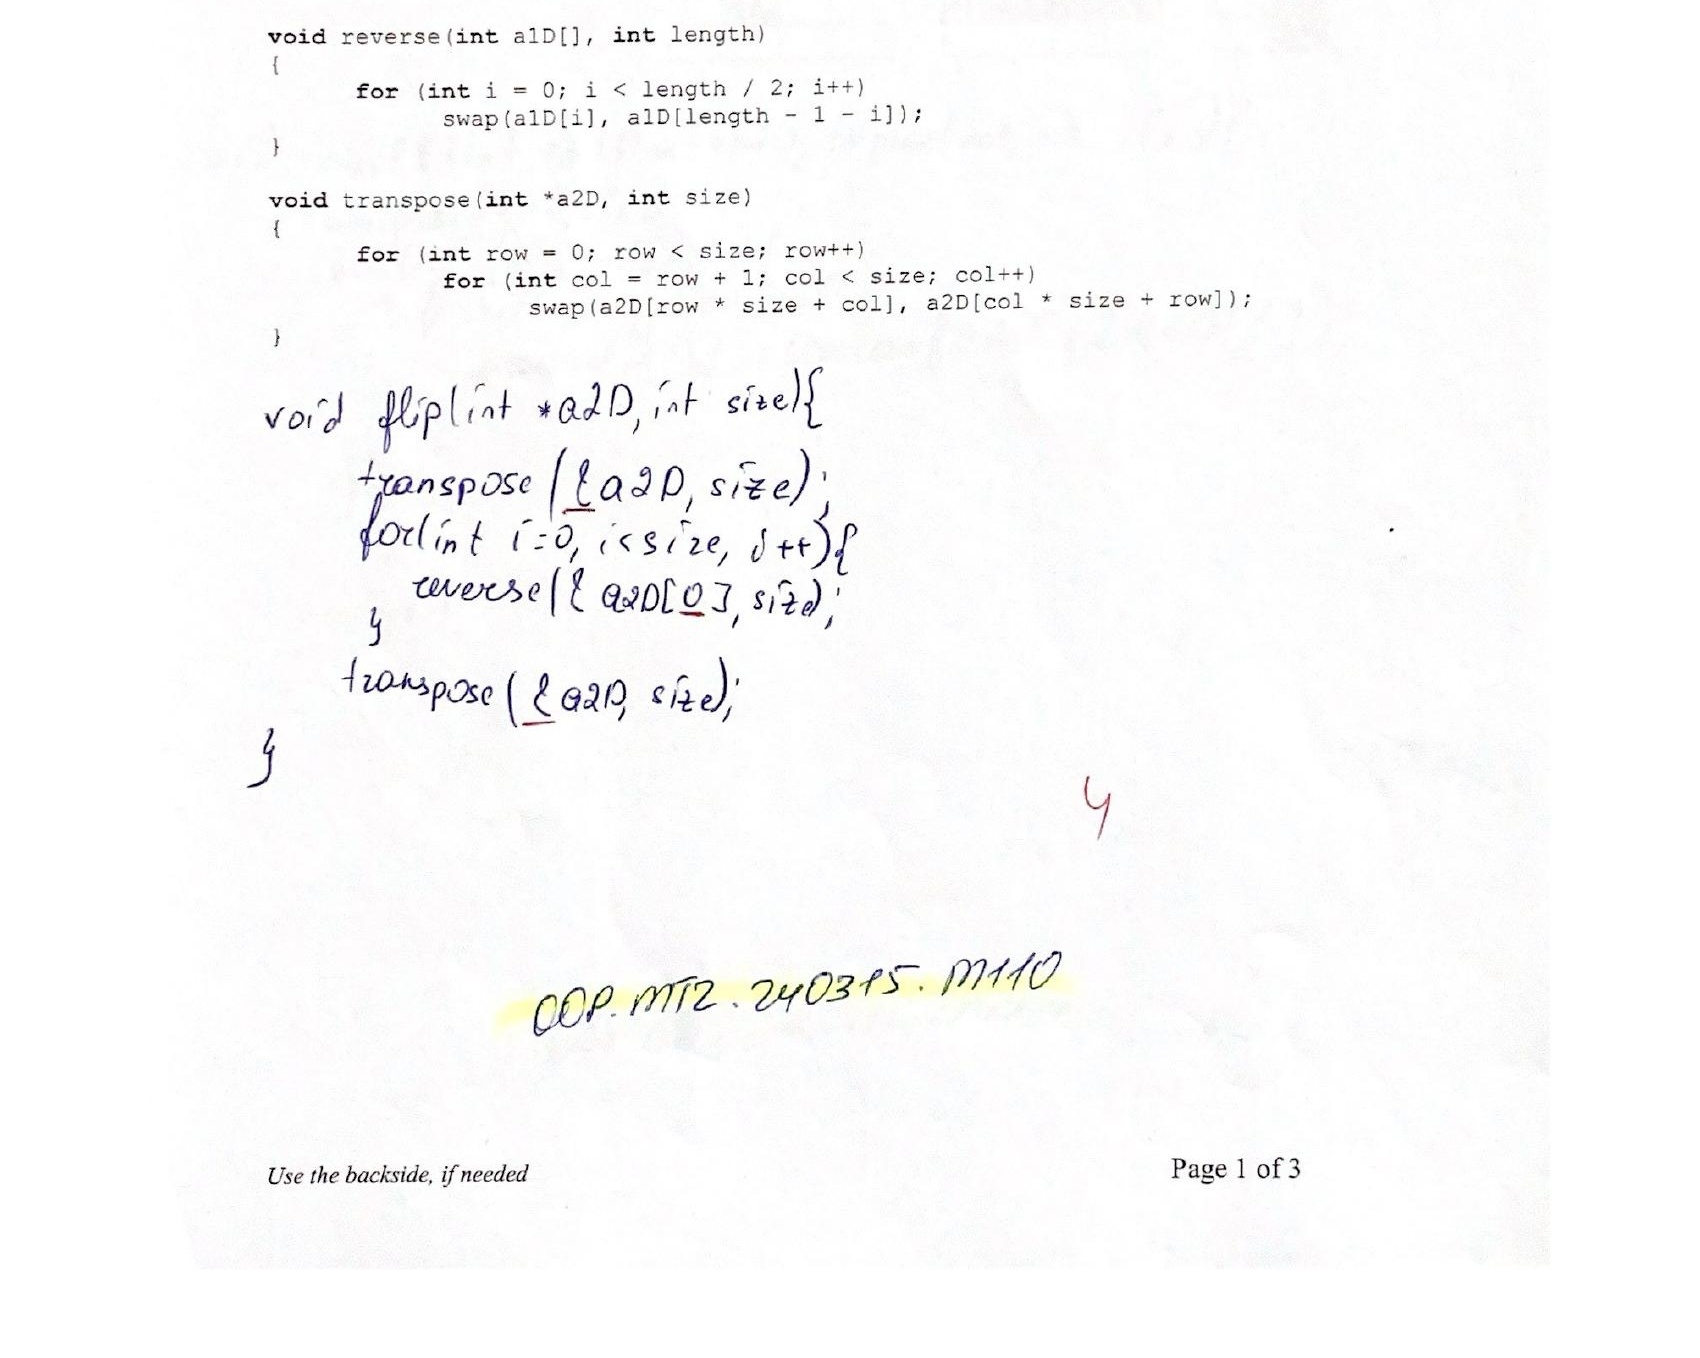 void reverse(int a1D[], int length)
{
for (int i = 0; i < length / 2; i++)
swap(a1D[i], a1D[length - 1 - i]);
}
void transpose(int *a2D, int size)
{
for (int row = 0; row < size; row++)
for (int col = row + 1; col < size; col++)
swap(a2D[row * size + col], a2D[col * size + row]);
}
void flip(int *a2D, int size){
transpose(&a2D, size);
for(int i=0, i<size, i++){
reverse(& a2D[0], size);
}
transpose(&a2D, size);
}
4
OOP.MT2.240315.M110
Use the backside, if needed
Page 1 of 3